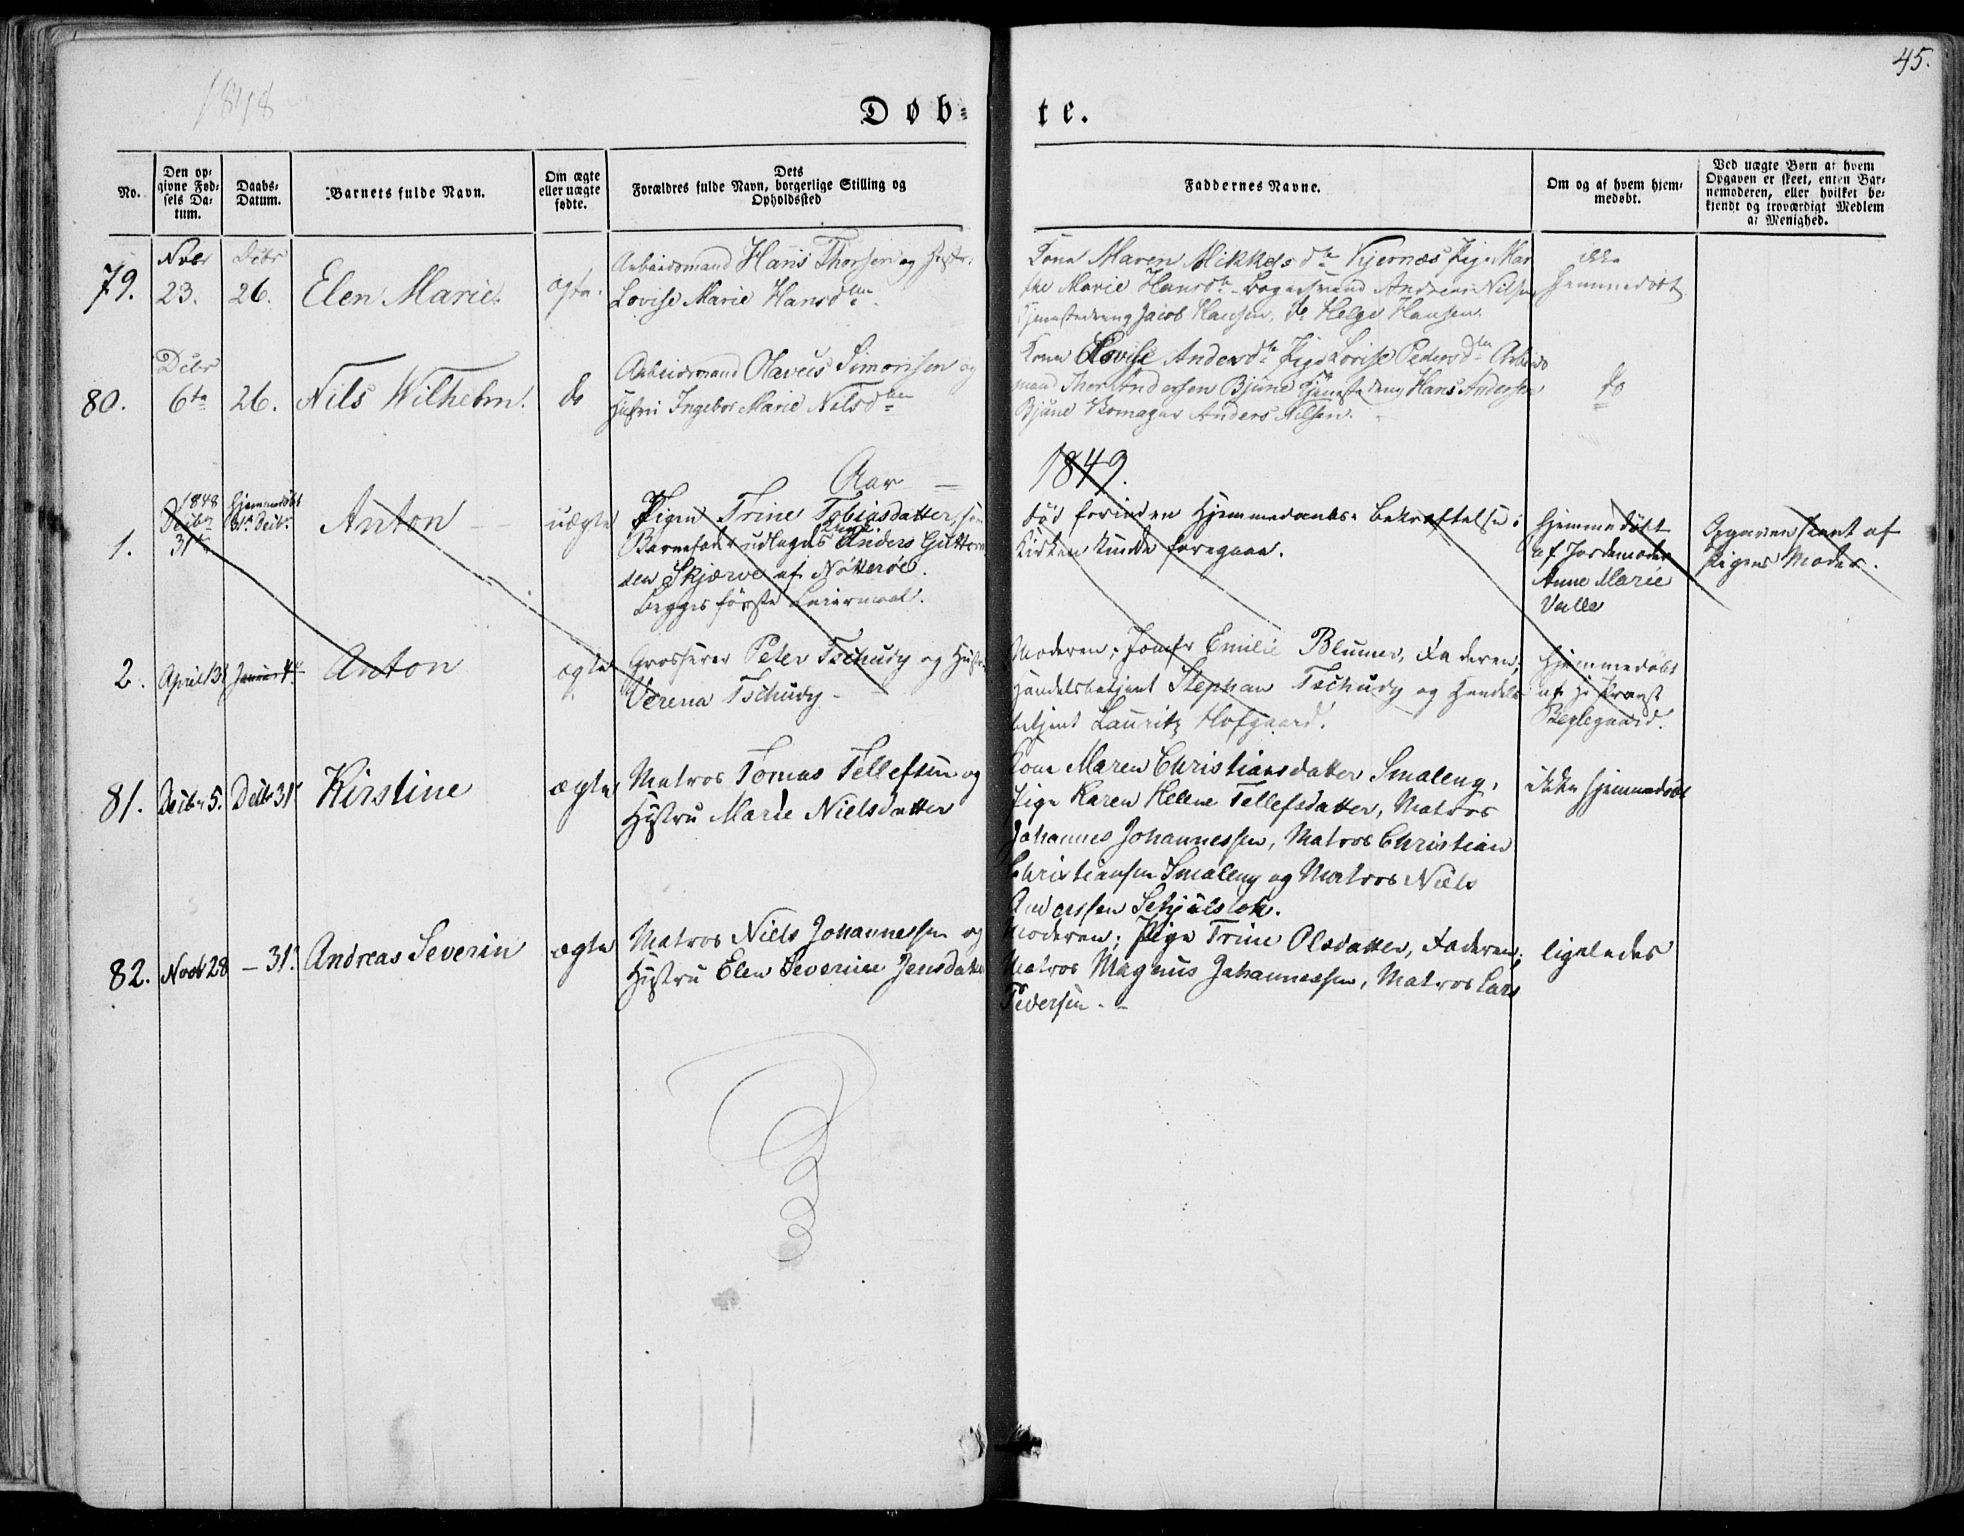 45.
1848
Døb-te.
No.
Den op-
givne Fød-
sels Da-
tum.
Daabs-
Datum.
Barnets fulde Navn.
Om ægte
eller uægte
fødte.
Dets
Forældres fulde Navn, borgerlige Stilling og
Opholdssted
Faddernes Navne.
Om og af hvem hjem-
medøbt.
Ved uægte Børn af hvem
Opgaven er skeet, enten Bar-
nemoderen, eller hvilket be-
kjendt og troværdigt Medlem
af Menighed.
79.
Nvbr
23.
Decbr
26.
Elen Marie.
ægte.
Arbeidsmand Hans Thorsen og Hustr.
Lovise Marie Hansdtter.
Kone Maren Mikkelsdtr Kjernæs Pige Mar
the Marie Hansdtr Andreas Nilsen
Tjenestedreng Jacob Hansen, Helge Hansen.
ikke
hjemmedøbt
80.
Decbr
6te
26.
Nils Wilhelm.
do
Arbeidsmand Olaves Simonsen og
Hustru Ingebor Marie Nilsdtter
Kone Lovise Andersdtr Pige Lovise Pedersdtr Arbeids
mand Thor Andersen Bjune Tjenestedreng Hans Andersen
Bjune Anders Nilsen.
do
Aar 1849.
1.
1848
Decbr
31te
Hjemmedøbt
31te Decbr.
Anton
uægte
Pigen Trine Tobiasdatter, som
Barnefader udlagdes Anders Guttorm
sen Skjærve af Nötterøe.
Begges første Leiermaal.
død forinden Hjemmedaabs-Bekræftelse i
Kirken kunde foregaae.
Hjemmedøbt
af Jordemoder
Anne Marie
Valle
Opgaven skeet af
Pigens Moder.
2.
April 13
Januar 4de
Anton
ægte
Grosserer Peter Tschudy og Hustru
Verena Tschudy
Moderen, Jomfr Emilie Blumer, Faderen,
Handelsbetjent Stephan Tschudy og Handels
betjent Lauritz Hofgaard.
Hjemmedøbt
af Hr Provst
Beglegaard.
81.
Decbr 5.
Decbr 31te
Kirstine
ægte
Matros Tomas Tellefsen og
Hustru Marie Nielsdatter
Kone Maren Christiansdatter Smaleng,
Pige Karen Helene Tellefsdatter, Matros
Johannes Johannessen, Matros Christian
Christiansen Smaleng og Matros Niels
Anderssen
ikke hjemmedøbt
82.
Novbr 28
— 31te
Andreas Severin
ægte
Matros Niels Johannessen og
Hustru Elen Severine Jensdatter
Moderen; Pige Trine Olsdatter, Faderen;
Matros Magnus Johannessen, Matros Lars
Pedersen.
ligeledes